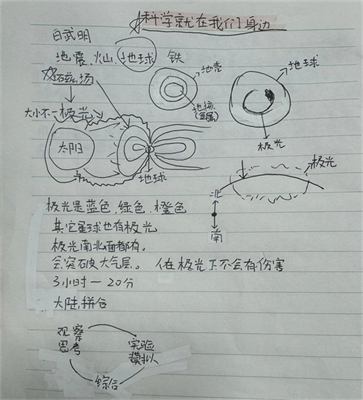 科学就在我们身边
白武明
地震,灿,地球,铁
磁场
地壳
地球
大小不一极光
地核
(金属)
太阳
极光
地球
极光
北
南
极光是蓝色,绿色,橙色
其它星球也有极光
极光南北面都有。
会突破大气层。人在极光下不会有伤害
3小时一20分
大陆,拼合
观察
思考
实验
模拟
综合